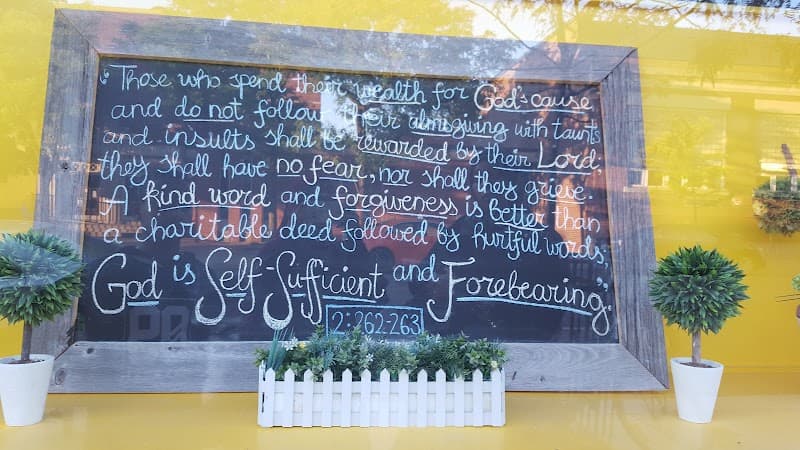 "Those who spend their wealth for God's cause
and do not follow their almsgiving with taunts
and insults shall be rewarded by their Lord;
they shall have no fear, nor shall they grieve.
A kind word and forgiveness is better than
a charitable deed followed by hurtful words;
God is Self-Sufficient and Forebearing."
2:262-263